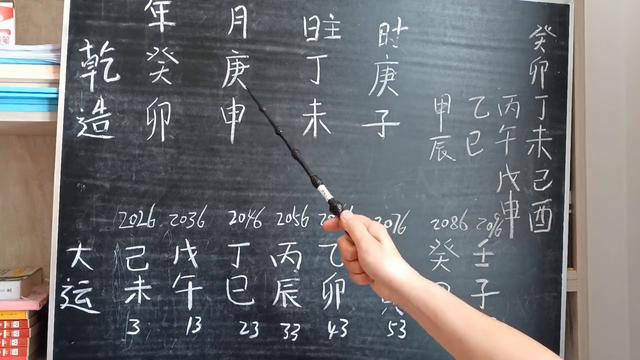 年 月 日主 时
乾 癸 庚 丁 庚
造 卯 申 未 子
癸卯丁未己酉
丙午戊申
乙巳
甲辰
2026 2036 2046 2056 2076 2086 2096
大 己 戊 丁 丙 乙 癸 壬
运 未 午 巳 辰 卯 子
3 13 23 33 43 53